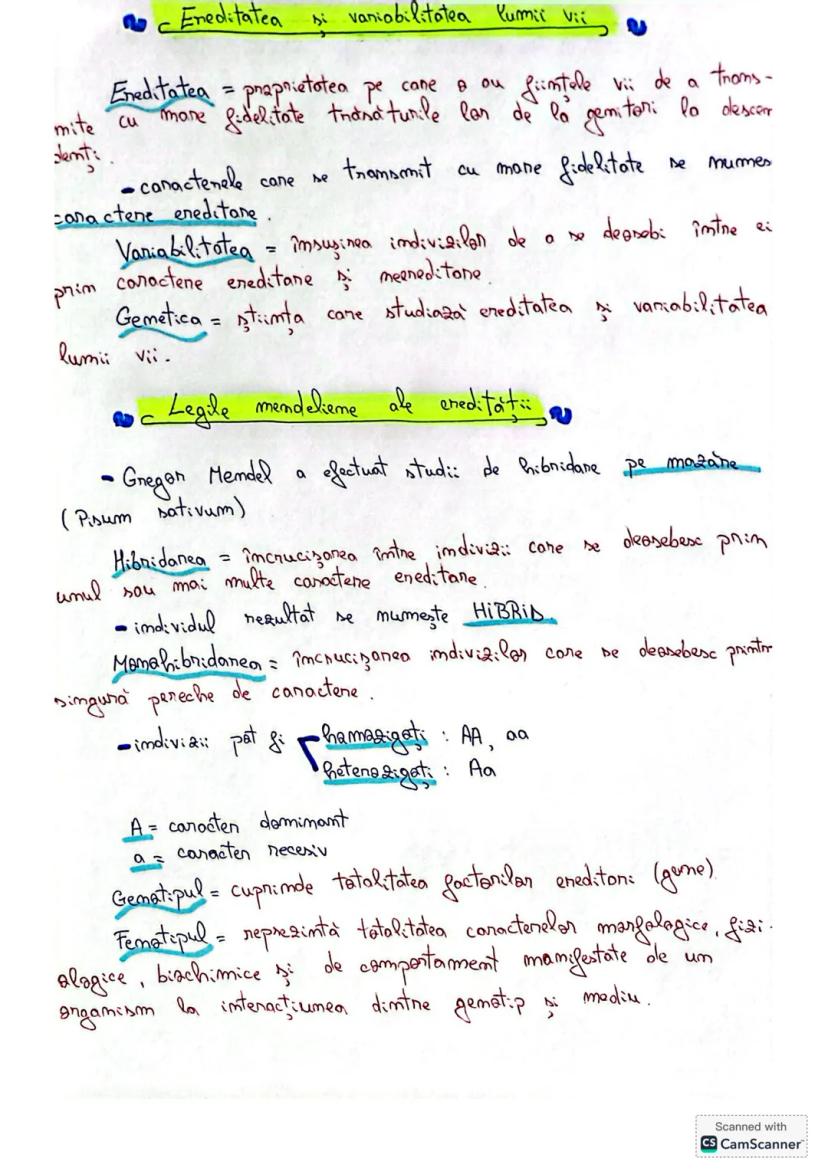 Ereditatea și variabilitatea lumii vii
Ereditatea = proprietatea pe care o au ființele vii de a trans-
mite cu mare fidelitate trăsăturile lor de la genitori la descen
denți.
- caracterele care se transmit cu mare fidelitate se numes
caractere ereditare.
Variabilitatea = însușirea indivizilor de a se deosebi între ei
prin caractere ereditare și neereditare.
Genetica = știința care studiază ereditatea și variabilitatea
lumii vii.
Legile mendeliene ale eredității
- Gregor Mendel a efectuat studii de hibridare pe mazăre
(Pisum sativum)
Hibridarea = încrucișarea între indivizii care se deosebesc prin
unul sau mai multe caractere ereditare.
- individul rezultat se numește HIBRID.
Monohibridarea = încrucișarea indivizilor care se deosebesc printr
singură pereche de caractere.
- indivizii pot fi homozigoți : AA, aa
heterozigoți : Aa
A = caracter dominant
a = caracter recesiv
Genotipul = cuprinde totalitatea factorilor ereditari (gene)
Fenotipul = reprezintă totalitatea caracterelor morfologice, fizi-
ologice, biochimice și de comportament manifestate de un
organism la interacțiunea dintre genotip și mediu.
Scanned with
CS CamScanner